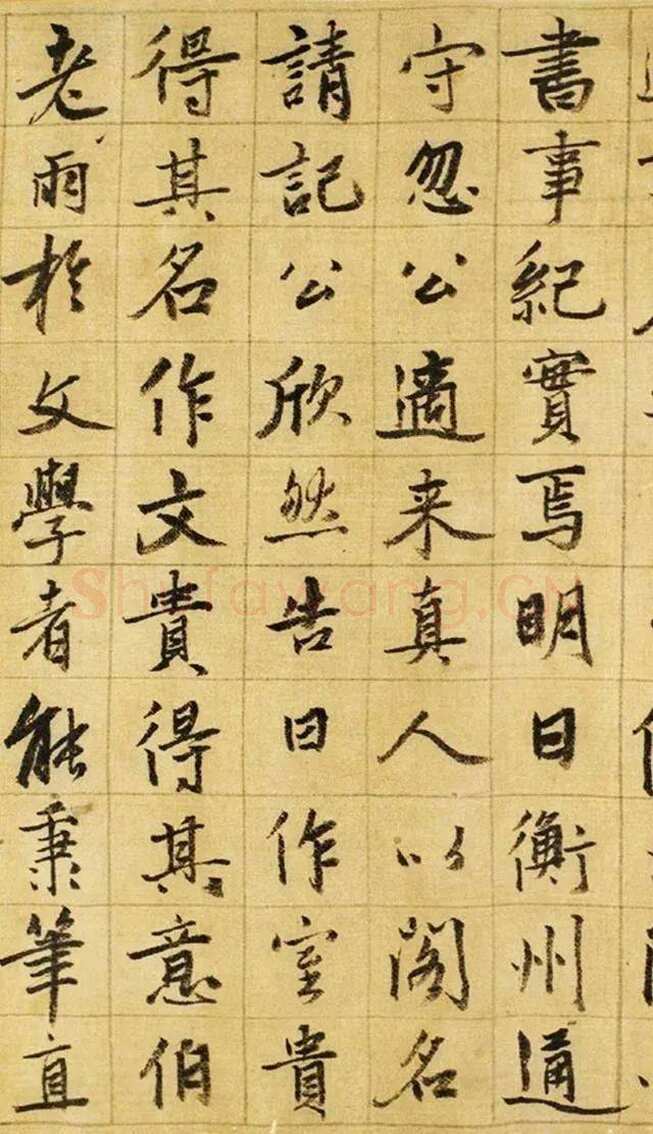 書事紀實焉明日衡州通
守忽公適来真人以閣名
請記公欣然告曰作室貴
得其名作文貴得其意伯
老雨於文學者能秉筆直
Shufawang.CN